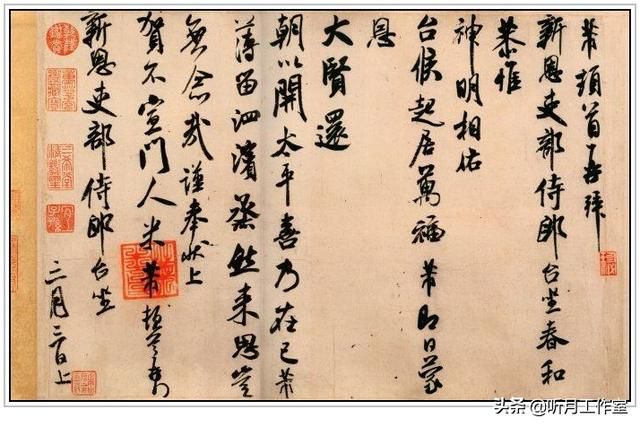 芾頓首再拜
新恩吏部侍郎台坐春和
恭惟
神明相佑
台候起居萬福芾即日蒙
恩
大賢還
朝以開太平喜乃在己芾
薄留泗濱蒸然來思豈
無念哉謹奉狀上
賀不宣門人米芾頓首
新恩吏部侍郎台坐
三月三日上
头条 @听月工作室